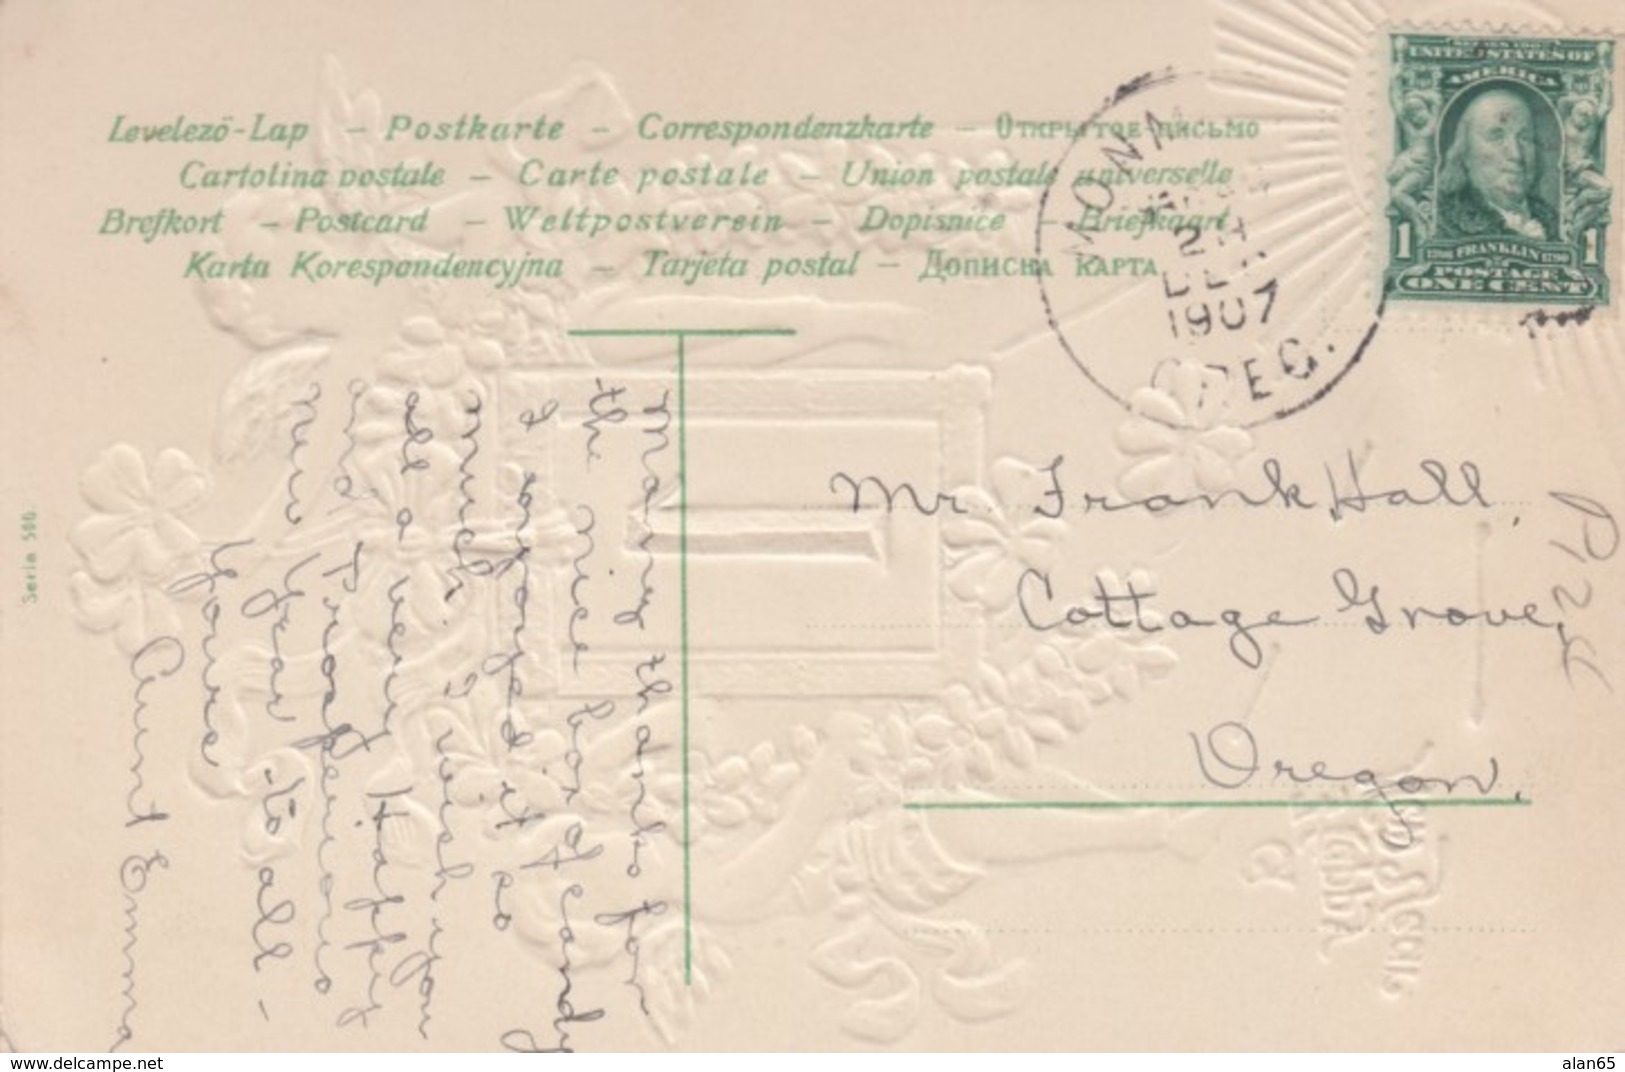 Levelező-Lap – Postkarte – Correspondenzkarte – Открытое письмо
Cartolina postale – Carte postale – Union postale universelle
Brefkort – Postcard – Weltpostverein – Dopisnice – Briefkaart
Karta Korespondencyjna – Tarjeta postal – Дописна карта
UNITED STATES OF
AMERICA
1
FRANKLIN
1
POSTAGE
ONE CENT
MON
1907
OREG.
Many thanks for
the nice box of candy
I enjoyed it so
much. I wish you
all a very Happy
and Prosperous
New Year to all –
Yours
Aunt Emma
Mr. Frank Hall,
Cottage Grove,
Oregon.
Serie 506
delcampe.net
alan65